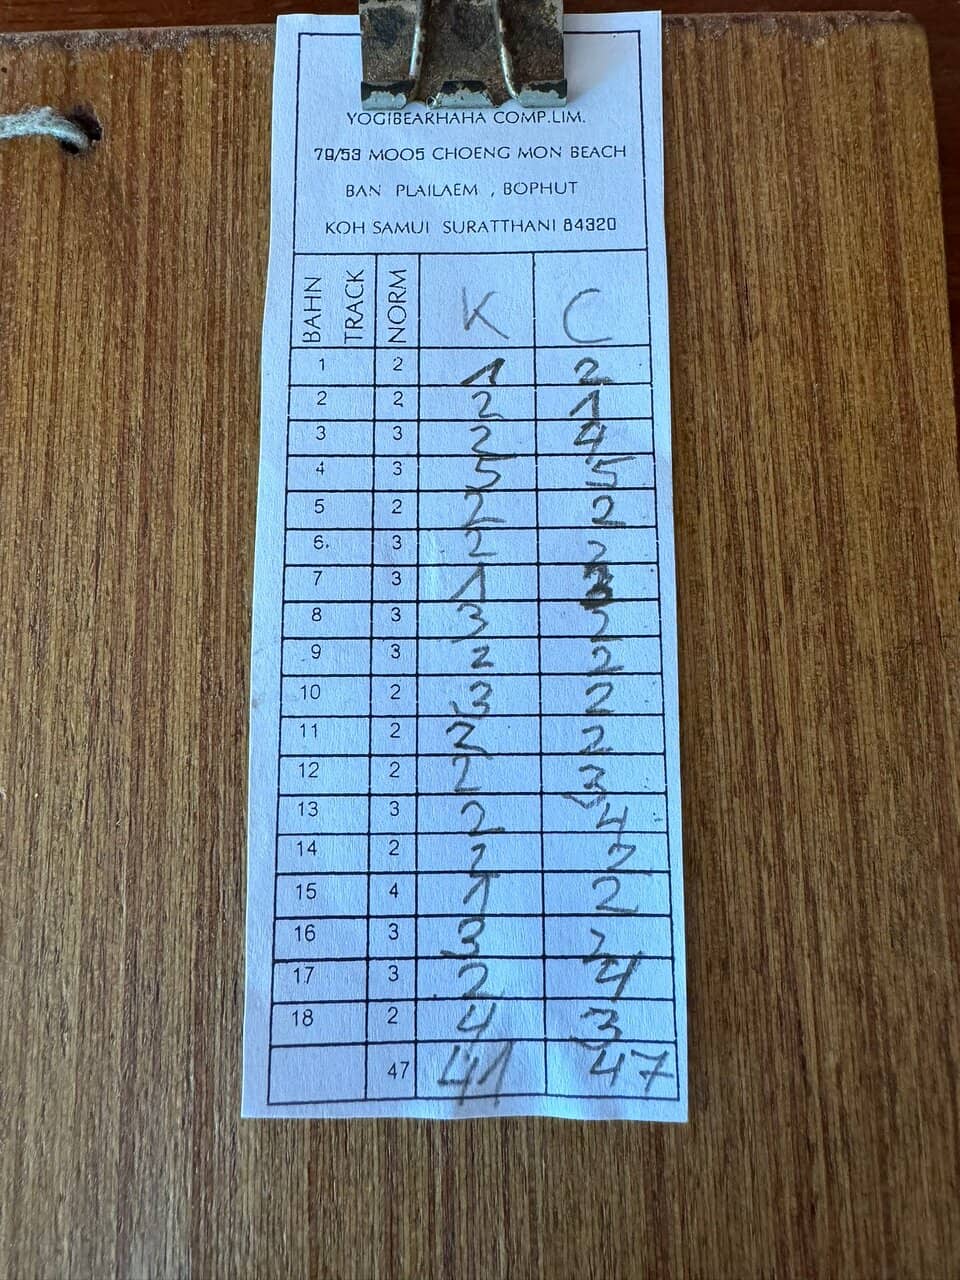 YOGIBEARHAHA COMP.LIM.
79/53 MOO5 CHOENG MON BEACH
BAN PLAILAEM , BOPHUT
KOH SAMUI SURATTHANI 84320
BAHN TRACK NORM K C
1 2 1 2
2 2 2 1
3 3 2 4
4 3 5 5
5 2 2 2
6. 3 2 2
7 3 1
8 3 3 2
9 3 2 2
10 2 3 2
11 2 2 2
12 2 2 3
13 3 2 4
14 2 2 2
15 4 1 2
16 3 3 2
17 3 2 4
18 2 4 3
47 41 47